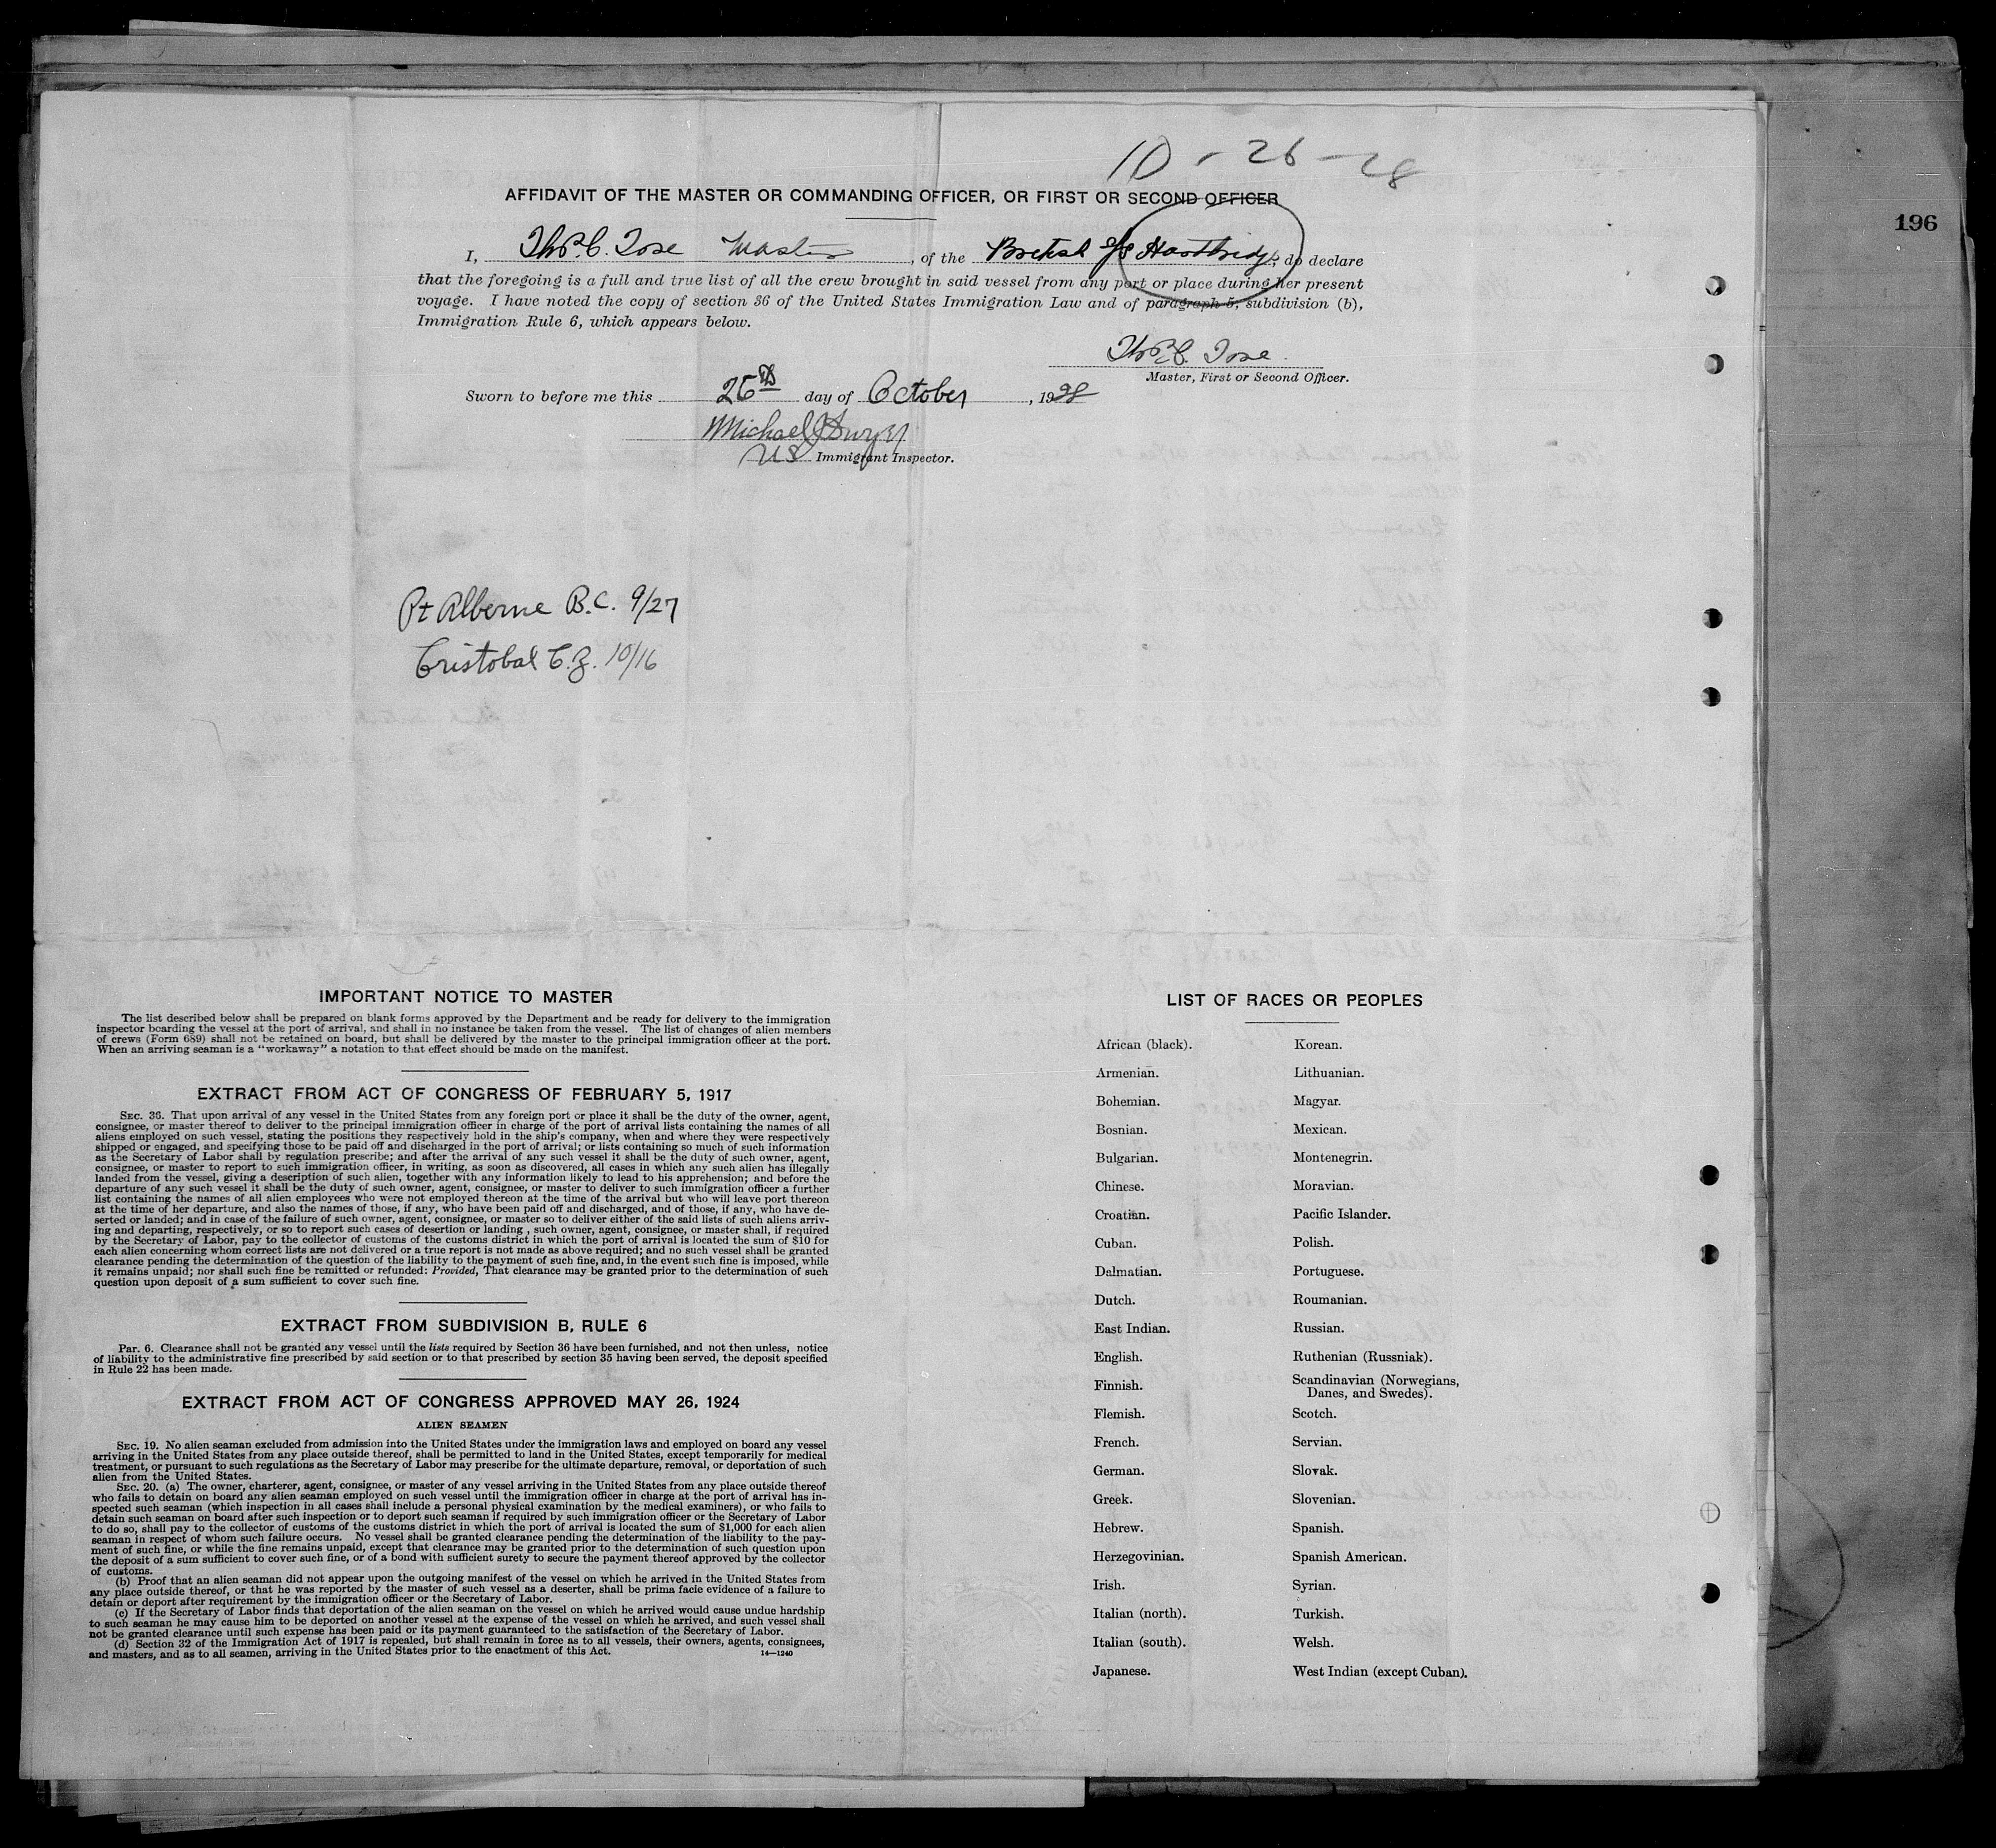 10 - 26 - 28
196
AFFIDAVIT OF THE MASTER OR COMMANDING OFFICER, OR FIRST OR SECOND OFFICER
I, Thos. C. Tose Master, of the British s/s Hartbridge, do declare
that the foregoing is a full and true list of all the crew brought in said vessel from any port or place during her present
voyage. I have noted the copy of section 36 of the United States Immigration Law and of paragraph 5, subdivision (b),
Immigration Rule 6, which appears below.
Tose.
Master, First or Second Officer.
Sworn to before me this 26th day of October, 1928
Michael J Dwyer
US Immigrant Inspector.
Pt Alberne B.C. 9/27
Cristobal C.Z. 10/16
IMPORTANT NOTICE TO MASTER
The list described below shall be prepared on blank forms approved by the Department and be ready for delivery to the immigration
inspector boarding the vessel at the port of arrival, and shall in no instance be taken from the vessel. The list of changes of alien members
of crews (Form 689) shall not be retained on board, but shall be delivered by the master to the principal immigration officer at the port.
When an arriving seaman is a "workaway" a notation to that effect should be made on the manifest.
EXTRACT FROM ACT OF CONGRESS OF FEBRUARY 5, 1917
SEC. 36. That upon arrival of any vessel in the United States from any foreign port or place it shall be the duty of the owner, agent,
consignee, or master thereof to deliver to the principal immigration officer in charge of the port of arrival lists containing the names of all
aliens employed on such vessel, stating the positions they respectively hold in the ship's company, when and where they were respectively
shipped or engaged, and specifying those to be paid off and discharged in the port of arrival; or lists containing so much of such information
as the Secretary of Labor shall by regulation prescribe; and after the arrival of any such vessel it shall be the duty of such owner, agent,
consignee, or master to report to such immigration officer, in writing, as soon as discovered, all cases in which any such alien has illegally
landed from the vessel, giving a description of such alien, together with any information likely to lead to his apprehension; and before the
departure of any such vessel it shall be the duty of such owner, agent, consignee, or master to deliver to such immigration officer a further
list containing the names of all alien employees who were not employed thereon at the time of the arrival but who will leave port thereon
at the time of her departure, and also the names of those, if any, who have been paid off and discharged, and of those, if any, who have de-
serted or landed; and in case of the failure of such owner, agent, consignee, or master so to deliver either of the said lists of such aliens arriv-
ing and departing, respectively, or so to report such cases of desertion or landing , such owner, agent, consignee, or master shall, if required
by the Secretary of Labor, pay to the collector of customs of the customs district in which the port of arrival is located the sum of $10 for
each alien concerning whom correct lists are not delivered or a true report is not made as above required; and no such vessel shall be granted
clearance pending the determination of the question of the liability to the payment of such fine, and, in the event such fine is imposed, while
it remains unpaid; nor shall such fine be remitted or refunded: Provided, That clearance may be granted prior to the determination of such
question upon deposit of a sum sufficient to cover such fine.
EXTRACT FROM SUBDIVISION B, RULE 6
Par. 6. Clearance shall not be granted any vessel until the lists required by Section 36 have been furnished, and not then unless, notice
of liability to the administrative fine prescribed by said section or to that prescribed by section 35 having been served, the deposit specified
in Rule 22 has been made.
EXTRACT FROM ACT OF CONGRESS APPROVED MAY 26, 1924
ALIEN SEAMEN
SEC. 19. No alien seaman excluded from admission into the United States under the immigration laws and employed on board any vessel
arriving in the United States from any place outside thereof, shall be permitted to land in the United States, except temporarily for medical
treatment, or pursuant to such regulations as the Secretary of Labor may prescribe for the ultimate departure, removal, or deportation of such
alien from the United States.
SEC. 20. (a) The owner, charterer, agent, consignee, or master of any vessel arriving in the United States from any place outside thereof
who fails to detain on board any alien seaman employed on such vessel until the immigration officer in charge at the port of arrival has in-
spected such seaman (which inspection in all cases shall include a personal physical examination by the medical examiners), or who fails to
detain such seaman on board after such inspection or to deport such seaman if required by such immigration officer or the Secretary of Labor
to do so, shall pay to the collector of customs of the customs district in which the port of arrival is located the sum of $1,000 for each alien
seaman in respect of whom such failure occurs. No vessel shall be granted clearance pending the determination of the liability to the pay-
ment of such fine, or while the fine remains unpaid, except that clearance may be granted prior to the determination of such question upon
the deposit of a sum sufficient to cover such fine, or of a bond with sufficient surety to secure the payment thereof approved by the collector
of customs.
(b) Proof that an alien seaman did not appear upon the outgoing manifest of the vessel on which he arrived in the United States from
any place outside thereof, or that he was reported by the master of such vessel as a deserter, shall be prima facie evidence of a failure to
detain or deport after requirement by the immigration officer or the Secretary of Labor.
(c) If the Secretary of Labor finds that deportation of the alien seaman on the vessel on which he arrived would cause undue hardship
to such seaman he may cause him to be deported on another vessel at the expense of the vessel on which he arrived, and such vessel shall
not be granted clearance until such expense has been paid or its payment guaranteed to the satisfaction of the Secretary of Labor.
(d) Section 32 of the Immigration Act of 1917 is repealed, but shall remain in force as to all vessels, their owners, agents, consignees,
and masters, and as to all seamen, arriving in the United States prior to the enactment of this Act.
14—1240
LIST OF RACES OR PEOPLES
African (black).
Armenian.
Bohemian.
Bosnian.
Bulgarian.
Chinese.
Croatian.
Cuban.
Dalmatian.
Dutch.
East Indian.
English.
Finnish.
Flemish.
French.
German.
Greek.
Hebrew.
Herzegovinian.
Irish.
Italian (north).
Italian (south).
Japanese.
Korean.
Lithuanian.
Magyar.
Mexican.
Montenegrin.
Moravian.
Pacific Islander.
Polish.
Portuguese.
Roumanian.
Russian.
Ruthenian (Russniak).
Scandinavian (Norwegians,
Danes, and Swedes).
Scotch.
Servian.
Slovak.
Slovenian.
Spanish.
Spanish American.
Syrian.
Turkish.
Welsh.
West Indian (except Cuban).